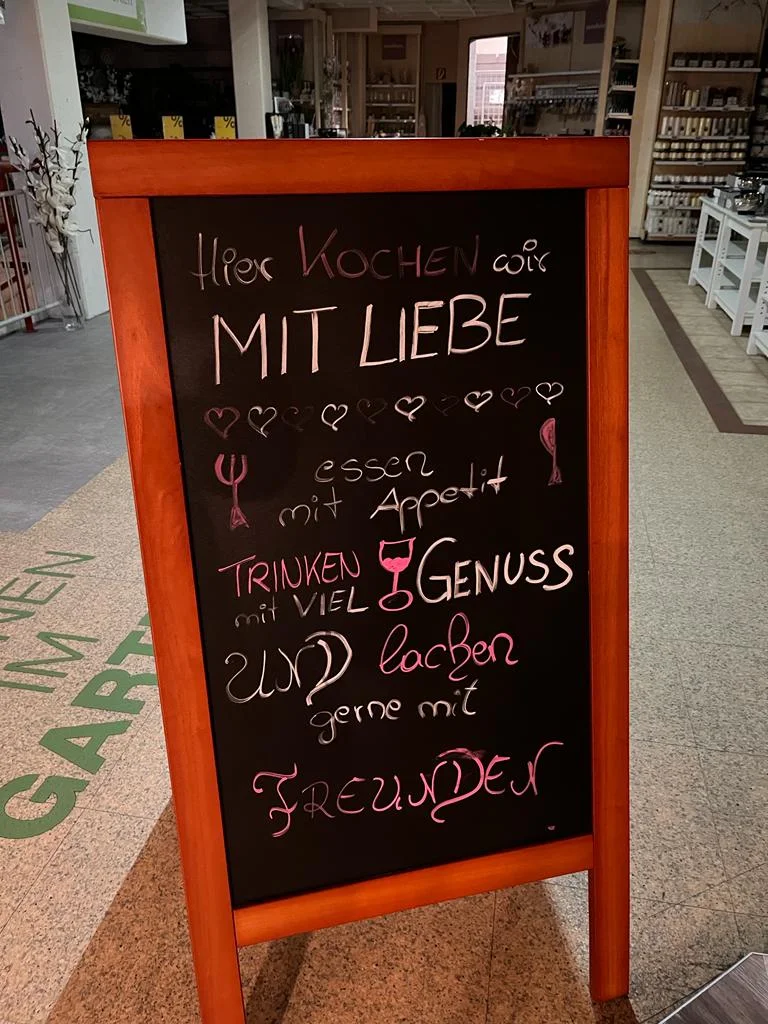 Hier KOCHEN wir
MIT LIEBE
essen
mit Appetit
TRINKEN GENUSS
mit VIEL
UND lachen
gerne mit
FREUNDEN
IM
% % %